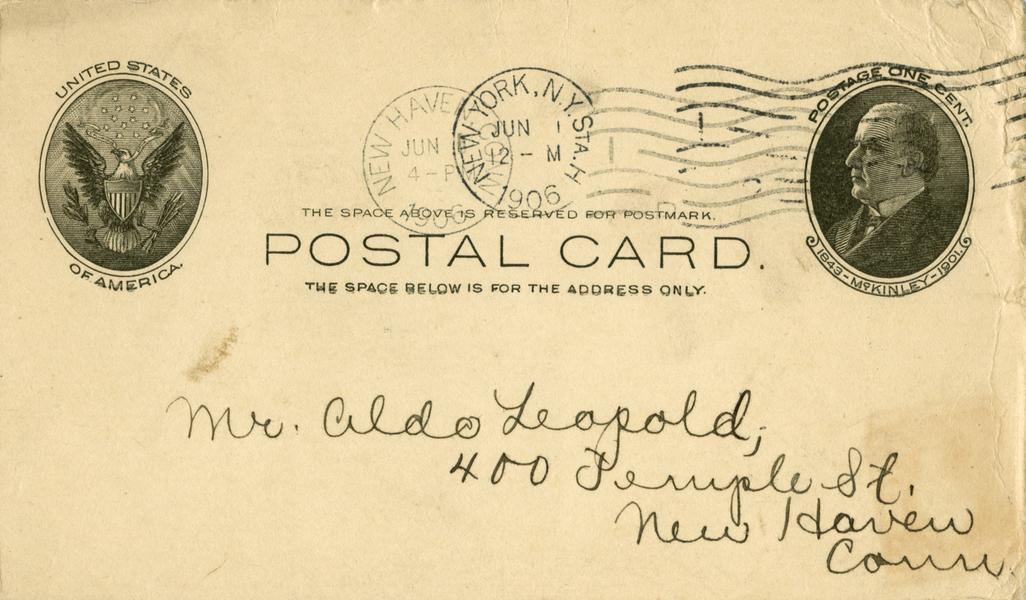 UNITED STATES
OF AMERICA.
NEW HAVEN
CONN
JUN
4-P
1906
NEW YORK, N.Y. STA. H
JUN 1
12-M
1906
POSTAGE ONE CENT.
1843-McKINLEY-1901.
THE SPACE ABOVE IS RESERVED FOR POSTMARK.
POSTAL CARD.
THE SPACE BELOW IS FOR THE ADDRESS ONLY.
Mr. Aldo Leopold,
400 Temple St.
New Haven
Conn.